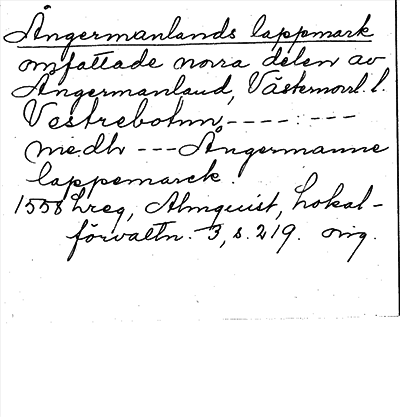 Ångermanlands lappmark
omfattade norra delen av
Ångermanland, Västernorrl. l.
Vestrebotnn, ----:---
medh --- Ångermanne
lappemarck.
1558 Lreg, Almquist, Lokal-
förvaltn. 3, s. 219. orig.